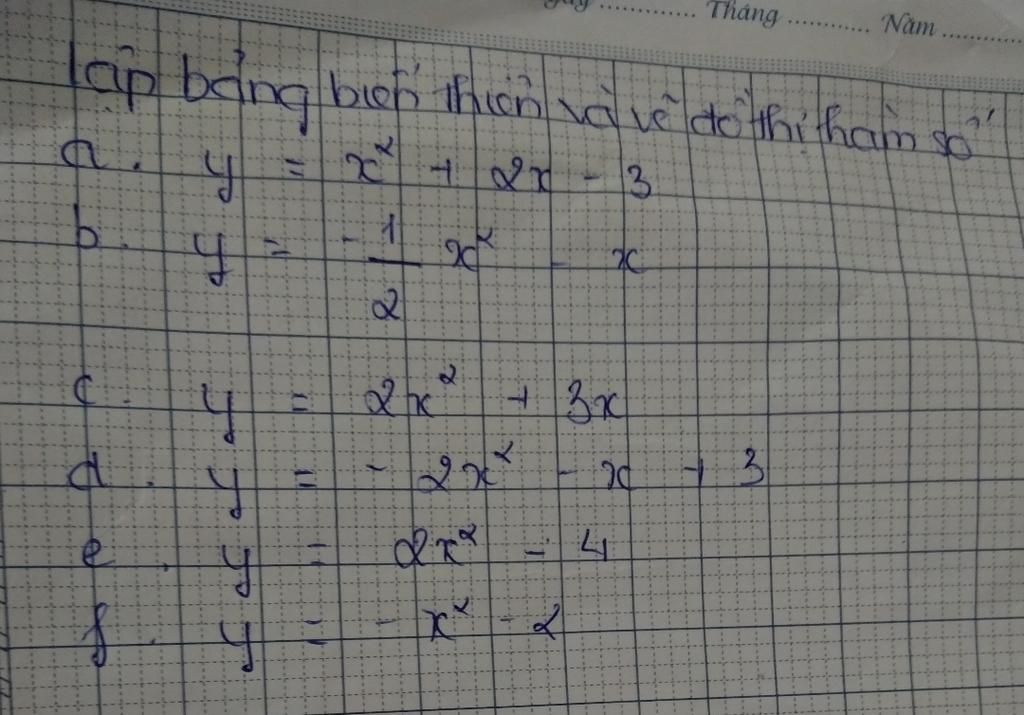 ày ............ Tháng ........... Năm ...........
lập bảng biến thiên và vẽ đồ thị hàm số
a. y = x² + 2x - 3
b. y = -1/2 x² - x
c. y = 2x² + 3x
d. y = - 2x² - x + 3
e. y = 2x² - 4
f. y = - x² - 2